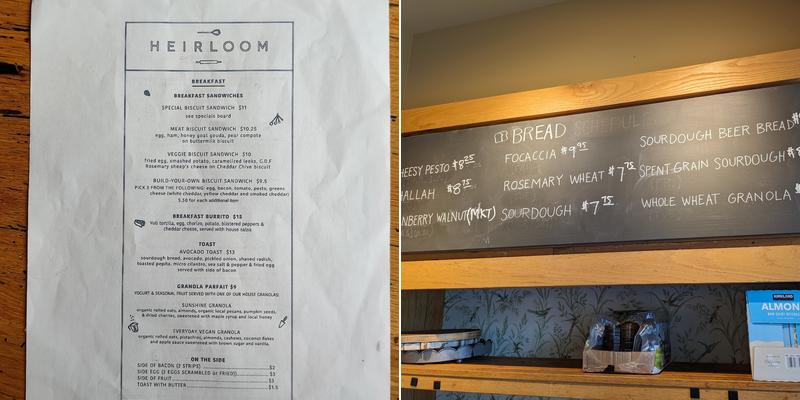 HEIRLOOM
BREAKFAST
BREAKFAST SANDWICHES
SPECIAL BISCUIT SANDWICH $11
see specials board
MEAT BISCUIT SANDWICH $10.25
egg, ham, honey goat gouda, pear compote
on buttermilk biscuit
VEGGIE BISCUIT SANDWICH $10
fried egg, smashed potato, caramelized leeks, G.D.F
Rosemary sheep's cheese on Cheddar Chive biscuit
BUILD-YOUR-OWN BISCUIT SANDWICH $9.5
PICK 3 FROM THE FOLLOWING: egg, bacon, tomato, pesto, greens
cheese (white cheddar, yellow cheddar and smoked cheddar)
$.50 for each additional item
BREAKFAST BURRITO $15
tortilla, egg, chorizo, potato, blistered peppers &
cheddar cheese, served with house salsa
TOAST
AVOCADO TOAST $13
sourdough bread, avocado, pickled onion, shaved radish,
toasted pepita, micro cilantro, sea salt & pepper & fried egg
served with side of bacon
GRANOLA PARFAIT $9
YOGURT & SEASONAL FRUIT SERVED WITH ONE OF OUR HOUSE GRANOLAS:
SUNSHINE GRANOLA
organic rolled oats, almonds, organic local pecans, pumpkin seeds,
& dried cherries, sweetened with maple syrup and local honey
EVERYDAY VEGAN GRANOLA
organic rolled oats, pistachios, almonds, cashews, coconut flakes
and apple sauce sweetened with brown sugar and vanilla,
ON THE SIDE
SIDE OF BACON (2 STRIPS) $2
SIDE EGG (2 EGGS SCRAMBLED or FRIED) $3
SIDE OF FRUIT $3
TOAST WITH BUTTER $1.5
BREAD SCHEDULE
HEESY PESTO $8.25
HALLAH $8.75
NBERRY WALNUT (MKT)
FOCACCIA $9.95
ROSEMARY WHEAT $7.75
SOURDOUGH $7.75
SOURDOUGH BEER BREAD
SPENT GRAIN SOURDOUGH
WHOLE WHEAT GRANOLA
KIRKLAND
ALMON